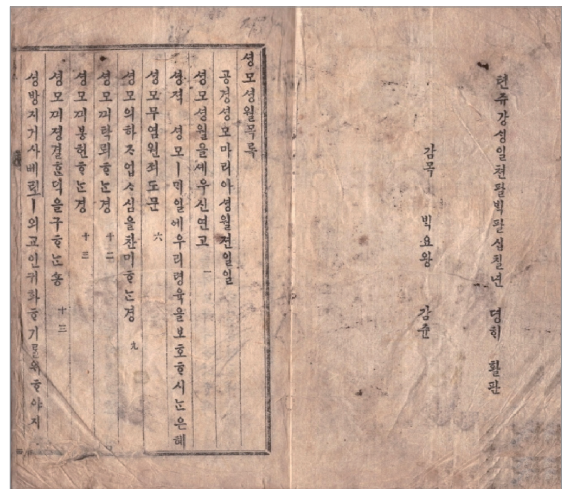 텬쥬강ᄉᆡᆼ일쳔팔ᄇᆡᆨ팔십칠년 뎡ᄒᆡ 활판
감목 ᄇᆡᆨ요왕 감쥰
셩모셩월목록
공경셩모마리아셩월젼일일
셩모셩월을세우신연고 一
셩젹 셩모ㅣᄆᆡ일에우리령육을보호ᄒᆞ시ᄂᆞᆫ은혜
셩모무염원죄도문 六
셩모의하ᄌᆞ업ᄉᆞ심을찬미ᄒᆞᄂᆞᆫ경 九
셩모ᄭᅴ탁뢰ᄒᆞᄂᆞᆫ경 十二
셩모ᄭᅴ봉헌ᄒᆞᄂᆞᆫ경 十三
셩모ᄭᅴ졍결ᄒᆞᆫ덕을구ᄒᆞᄂᆞᆫ숑 十三
셩방지거사베릐ㅣ외교인귀화ᄒᆞ기ᄅᆞᆯ위ᄒᆞ야지